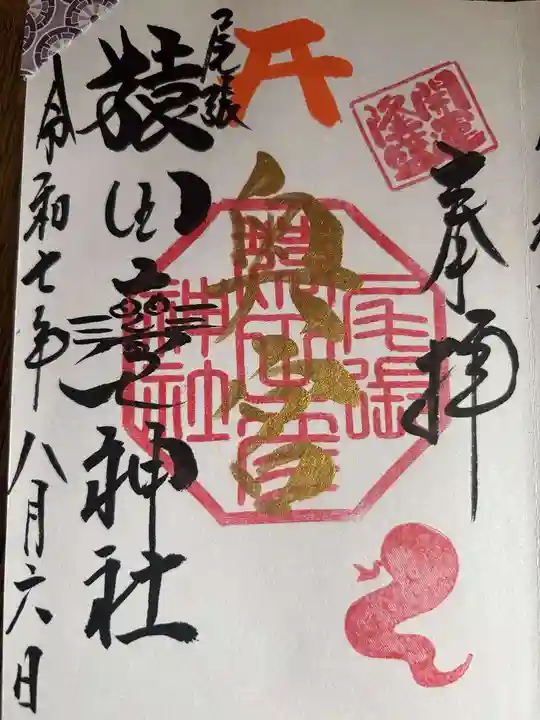 奉拝
開運
隆盛
尾張
神社
奥宮
尾張
猿田彦神社
令和七年八月六日